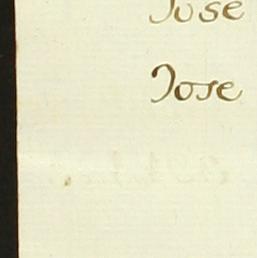 Jose
Jose